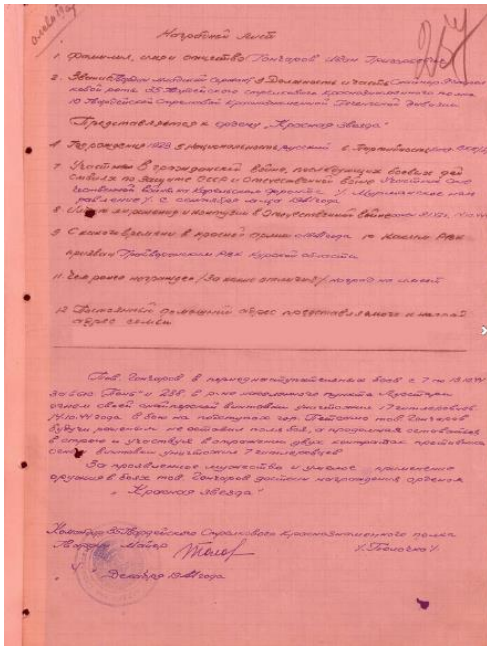 Наградной лист
1. Фамилия, имя и отчество Гончаров Иван Григорьевич
2. Звание Гвардии младший сержант 3 Должность и часть Снайпер
ковой роты 35 Гвардейского стрелкового Краснознаменного полка
10 Гвардейской Стрелковой Краснознаменной Печенгской Дивизии
Представляется к ордену „Красная звезда"
4 Год рождения 1923 5 Национальность русский 6 Партийность
7 Участник в гражданской войне, последующих боевых дей
ствиях по защите СССР и отечественной войне Участник Оте
чественной войны на Карельском фронте / Мурманское нап
равление / с сентября 1941 года
8 Имеет ли ранения и контузии в Отечественной войне
9 С какого времени в красной армии 10 Каким РВК
призван Грайворонским РВК Курской области
11. Чем ранее награжден /за какие отличия/ наград не имеет
12 Постоянный домашний адрес представляемого к награде
адрес семьи
Тов. Гончаров в период наступательных боев с 7 по
за бою в р-не населенного пункта Луостари
огнем своей снайперской винтовки уничтожил 17 гитлеровцев
14.10.44 года в бою на подступах гор. Петсамо тов. Гончаров
будучи раненым не оставил поля боя, а продолжал оставаться
в строю и участвуя в отражении двух контратак противника
винтовки уничтожил 7 гитлеровцев
За проявленное мужество и умелое применение
оружия в боях тов. Гончаров достоин награждения орденом
„Красная звезда"
Командир 35 Гвардейского Стрелкового Краснознаменного полка
Гвардии Майор /Толочко/
Декабря 1944 года